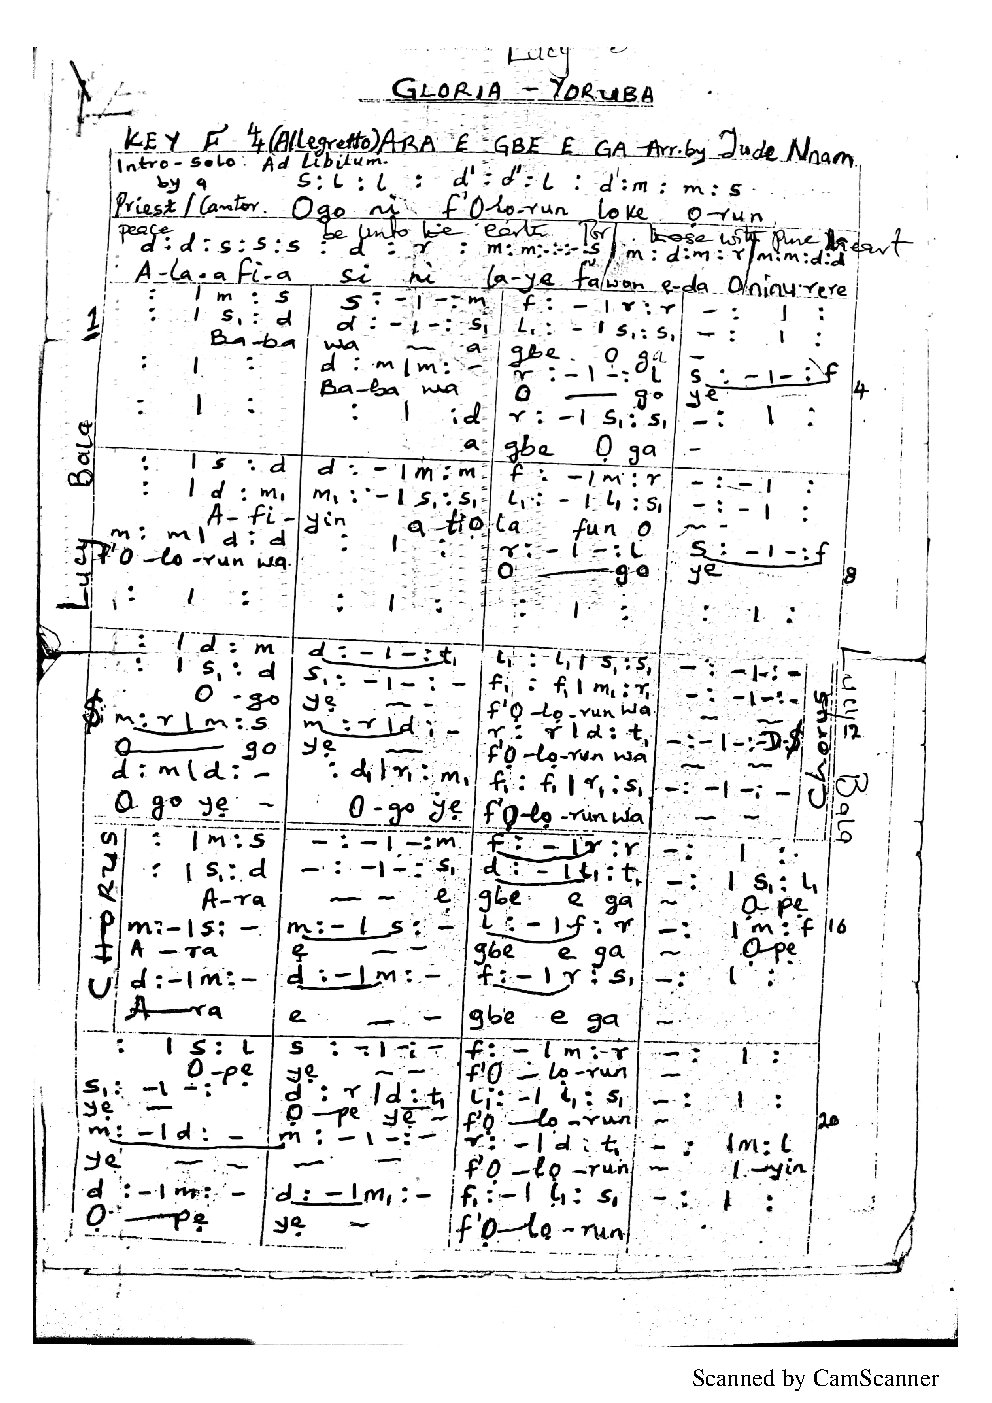 Lucy
GLORIA - YORUBA
KEY F 4/4 (Allegretto) ARA E GBE E GA Arr. by Jude Nnam
Intro-solo. Ad Libitum.
by a s : l : l : d' : d' : l : d' : m : m : s
Priest/Cantor. Ogo ni f'Ọ-lo-run loke ọ-run
peace be unto the earth for those with pure heart
d : d : s : s : s : d : r : m : m : - : - : s / m : d : m : r / m : m : d : d
A-la-a fi-a si ni la-ye fawon e-da Oninu-rere
: | m : s s : - | - : m f : - | r : r - : | :
: | s₁ : d d : - | - : s₁ l₁ : - | s₁ : s₁ - : | :
Ba-ba wa — a gbe O ga -
: | : d : m | m : - r : - | - : l s : - | - : f
Ba-ba wa O — go ye 4
: | : : | : d r : - | s₁ : s₁ - : | :
a gbe O ga -
Lucy Bala
: | s : d d : - | m : m f : - | m : r - : - | :
: | d : m₁ m₁ : - | s₁ : s₁ l₁ : - | l₁ : s₁ - : - | :
A-fi-yin a-ti Ọla fun O ~ -
m : m | d : d : | : r : - | - : l s : - | - : f
f'Ọ-lo-run wa. O — go ye 8
: | : : | : : | : : | :
: | d : m d : - | - : t₁ l₁ : l₁ | s₁ : s₁ - : - | - : -
: | s₁ : d s₁ : - | - : - f₁ : f₁ | m₁ : r₁ - : - | - : -
O-go yẹ ~ f'Ọ-lọ-run wa ~ ~
m : r | m : s m : r | d : - r : r | d : t₁ - : - | - : D.S 12
O — go yẹ ~ f'Ọ-lọ-run wa ~ ~
d : m | d : - : d₁ | r₁ : m₁ f₁ : f₁ | r₁ : s₁ - : - | - : -
O go yẹ ~ O-go yẹ f'Ọ-lọ-run wa ~ ~
Chorus
Lucy Bala
CHORUS
: | m : s - : - | - : m f : - | r : r - : | :
: | s₁ : d - : - | - : s₁ d : - | t₁ : t₁ - : | s₁ : l₁
A-ra — ~ e gbe e ga ~ Ọ pe
m : - | s : - m : - | s : - l : - | f : r - : | m : f 16
A — ra e — - gbe e ga ~ Ọpe
d : - | m : - d : - | m : - f : - | r : s₁ - : | :
A — ra e — - gbe e ga ~
: | s : l s : - | - : - f : - | m : r - : | :
O-pe yẹ ~ ~ f'Ọ — lo-run ~
s₁ : - | - : d : r | d : t₁ l₁ : - | l₁ : s₁ - : | :
yẹ — O — pe yẹ ~ f'Ọ — lo-run ~ 20
m : - | d : - m : - | - : - r : - | d : t₁ - : | m : l
yẹ ~ ~ ~ ~ f'Ọ-lọ-run ~ I-yin
d : - | m : - d : - | m₁ : - f₁ : - | l₁ : s₁ - : | :
Ọ — pẹ yẹ ~ f'Ọ-lọ-run
Scanned by CamScanner